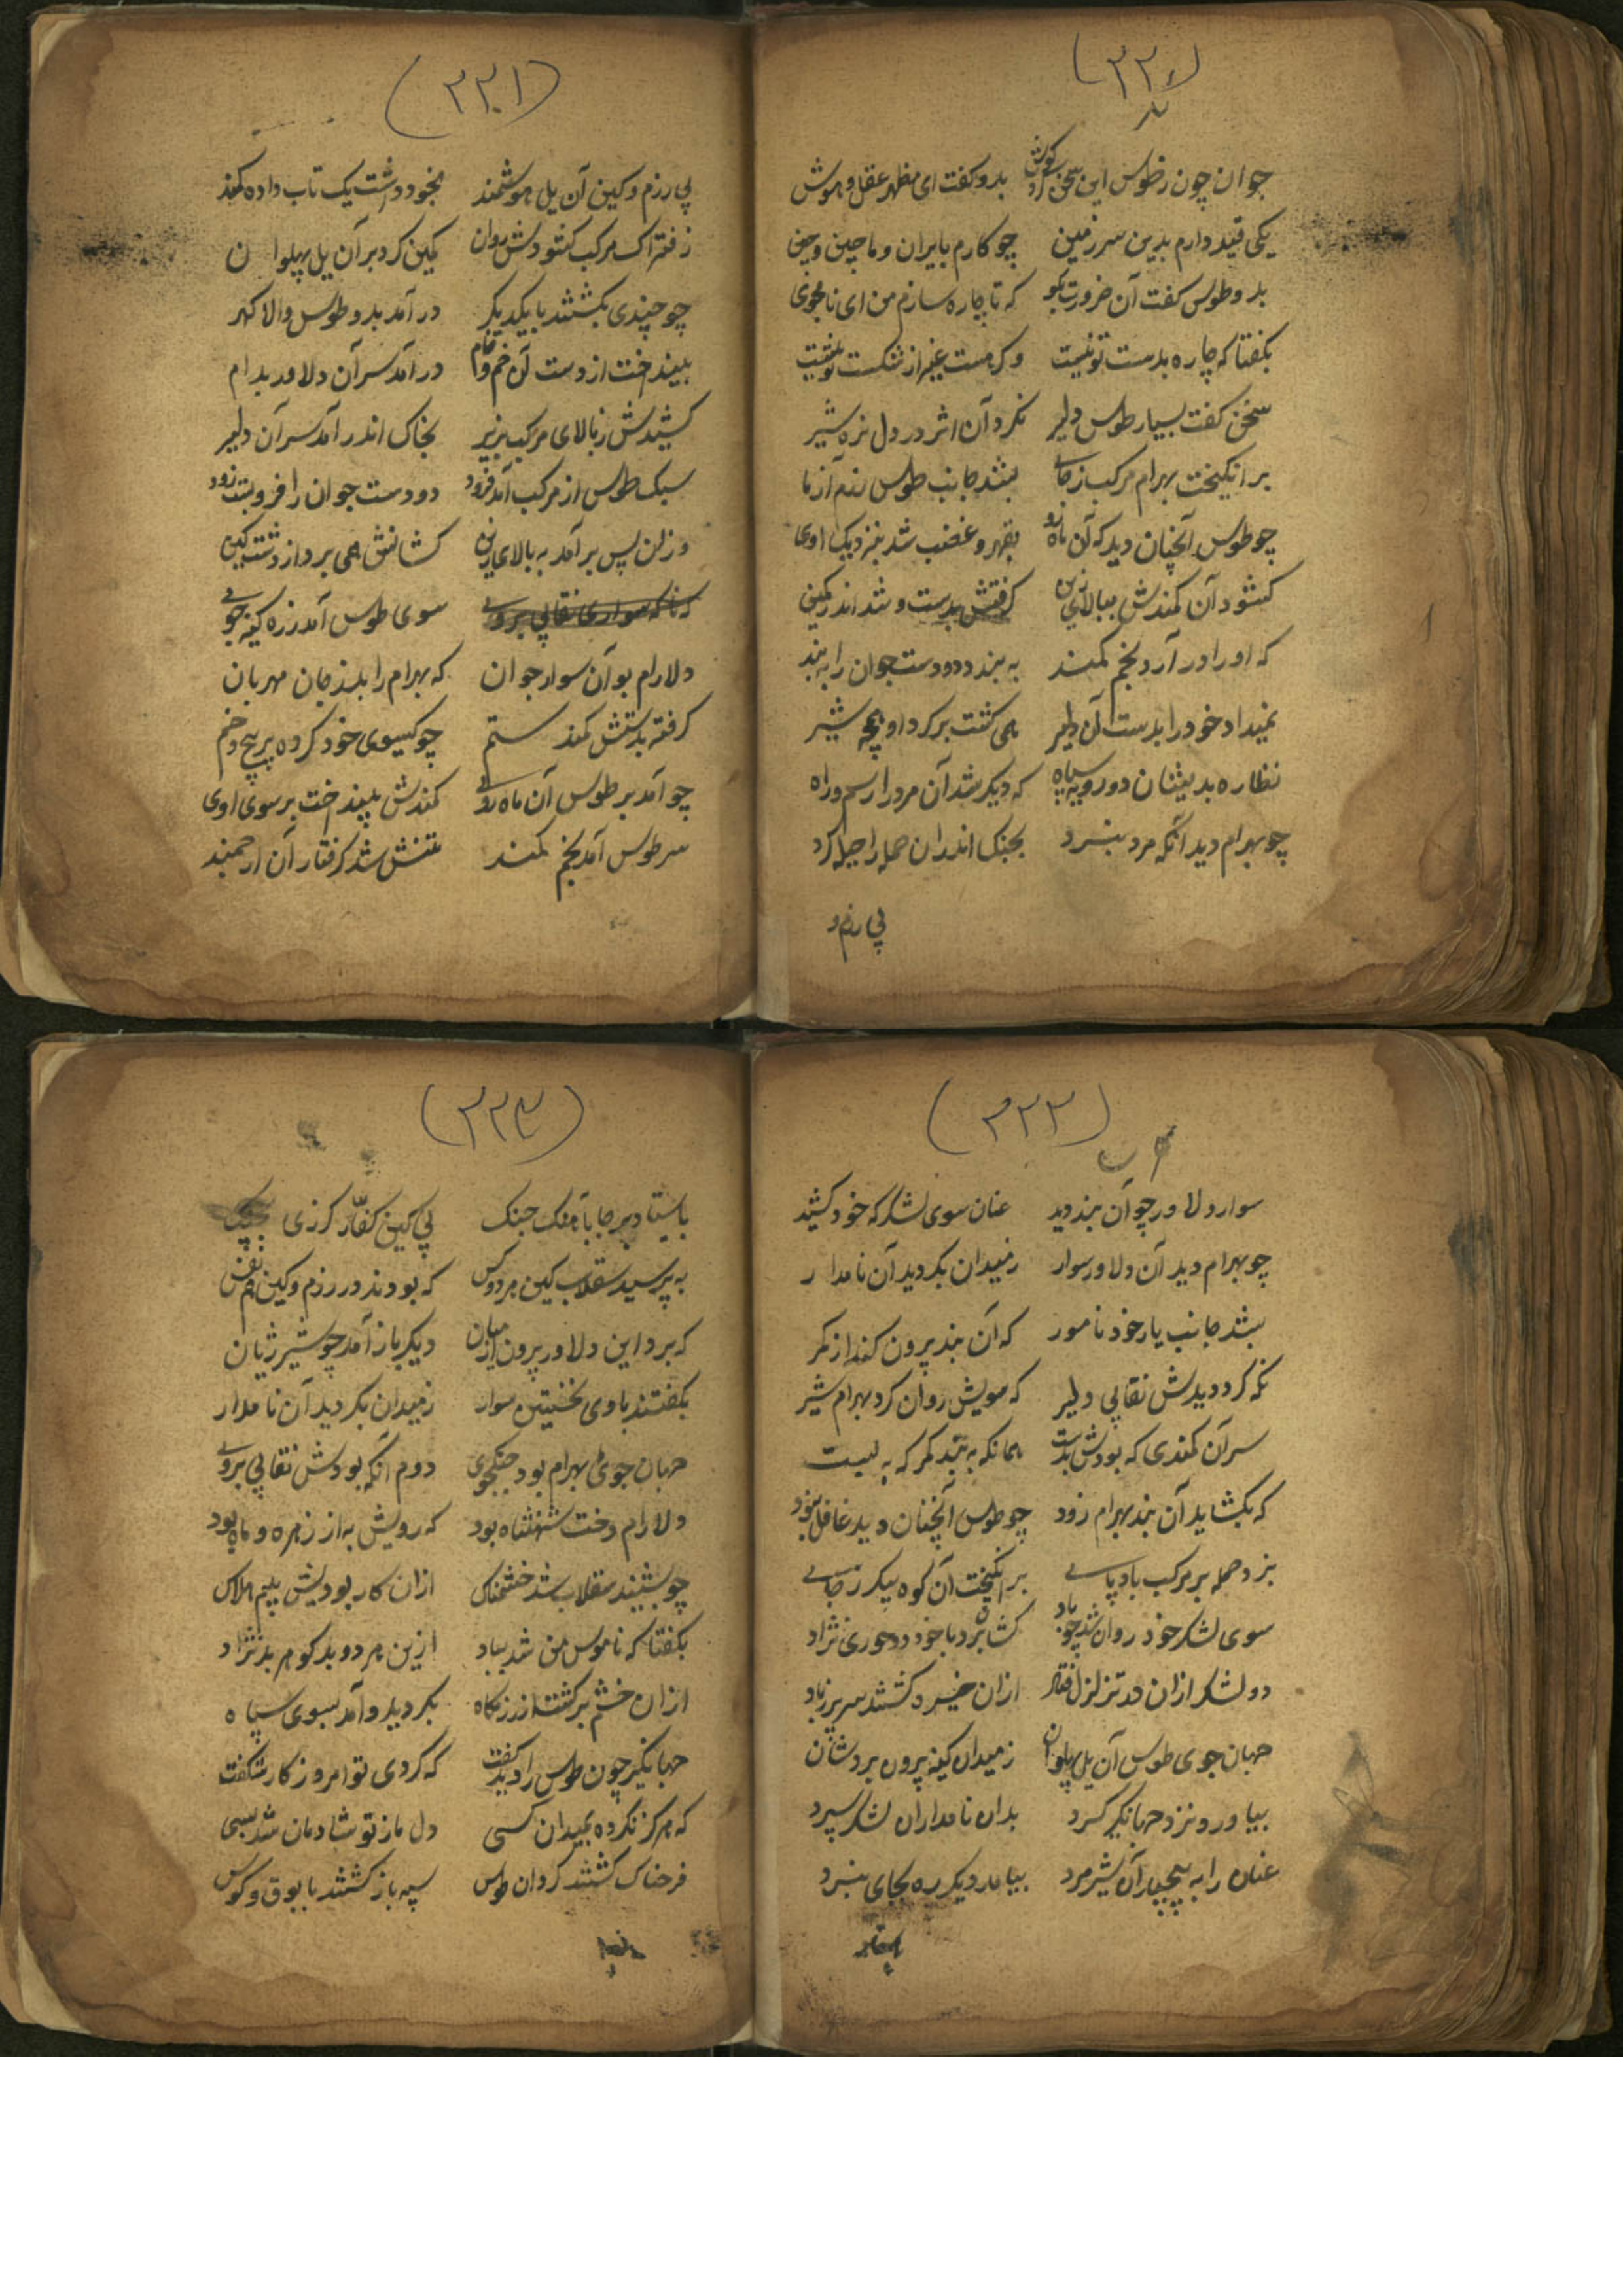 (۳۳۰)
جوان چون ز طوس این سخن کرد گوش بدو گفت ای مظهر عقل و هوش
یکی قید دارم بدین سرزمین چو کارم بایران و ماچین و چین
بدو طوس گفت آن ضرورت بگو که تا چاره سازم من ای نامجوی
بگفتا که چاره بدست تو نیست
سخن گفت بسیار طوس دلیر نکرد آن اثر در دل نره شیر
برانگیخت بهرام مرکب ز جای بشد جانب طوس رزم آزما
چو طوس آنچنان دید که آن ماه رو بقهر و غضب شد بنزدیک اوی
گشود آن کمندش ببالای زین گرفتش بدست و شد اندر کمین
که او را در آرد بخم کمند به بندد دو دست جوان را به بند
نمیداد خود را بدست آن دلیر همی گشت بر گرد او بچه شیر
نظاره بدیشان دو رویه سپاه که دیگر شد آن مرد را رسم و راه
چو بهرام دید آنکه مرد نبرد بجنگ اندران حمله را حیله کرد
پی رزم و
(۳۳۱)
پی رزم و کین آن یل هوشمند بخود داشت یک تاب داده کمند
ز فتراک مرکب گشودش روان کمین کرد بر آن یل پهلوان
چو چندی بگشتند با یکدیگر در آمد بدو طوس والا گهر
بینداخت از دست آن خم خام در آمد سر آن دلاور بدام
کشیدش ز بالای مرکب بزیر بخاک اندر آمد سر آن دلیر
سبک طوس از مرکب آمد فرود دو دست جوان را فرو بست زود
وزان پس بر آمد به بالای زین کشانش همی برد از دشت کین
که ناگه سواری نقابی بروی سوی طوس آمد زره کینه جوی
دلارام بو آن سوار جوان که بهرام را بد ز جان مهربان
گرفته بدستش کمند ستم چو گیسوی خود کرده پر پیچ و خم
چو آمد بر طوس آن ماه روی کمندش بینداخت بر سوی اوی
سر طوس آمد بخم کمند تنش شد گرفتار آن ارجمند
(۳۳۲)
سوار دلاور چو آن بند دید عنان سوی لشکرگه خود کشید
چو بهرام دید آن دلاور سوار ز میدان بگردید آن نامدار
بشد جانب یار خود نامور که آن بند بیرون کند از کمر
نگه کرد دیدش نقابی دلیر که سویش روان کرد بهرام شیر
سر آن کمندی که بودش بدست همانگه به بند کمر که به بست
که بگشاید آن بند بهرام زود چو طوس آنچنان دید غافل نبود
بزد حمله بر مرکب بادپای برانگیخت آن کوه پیکر ز جای
سوی لشکر خود روان شد چو باد کشان برد با خود دو حوری نژاد
دو لشکر ازان در تزلزل فتاد ازان خیره گشتند سر پر ز باد
جهان جوی طوس آن یل پهلوان ز میدان کینه برون بردشان
بیاورد نزد جهانگیر گرد بدان نامداران لشکر سپرد
عنان را به پیچید آن شیر مرد بیامد دیگر ره بجای نبرد
باستاد
(۳۳۳)
باستاد بر جا با آهنگ جنگ پی کین کفار گرزی بچنگ
به پرسید سقلاب کین هر دو کس که بودند در رزم و کین هم نفس
که برد این دلاور برون از میان دیگر باز آمد چو شیر ژیان
بگفتند با وی نخستین سوار ز میدان بگردید آن نامدار
جهان جوی بهرام بود جنگجوی دوم آنکه بودش نقابی بروی
دلارام دخت شهنشاه بود که رویش به از زهره و ماه بود
چو بشنید سقلاب شد خشمناک ازان کار بودیش بیم هلاک
بگفتا که ناموس من شد بباد ازین هر دو بد گوهر بد نژاد
ازان خشم برگشت از رزمگاه بگردید و آمد بسوی سپاه
جهانگیر چون طوس را دید گفت که کردی تو امروز کار شگفت
که هرگز نکرده بمیدان کسی دل ما ز تو شادمان شد بسی
فرحناک گشتند گردان طوس سپه باز گشتند با بوق و کوس